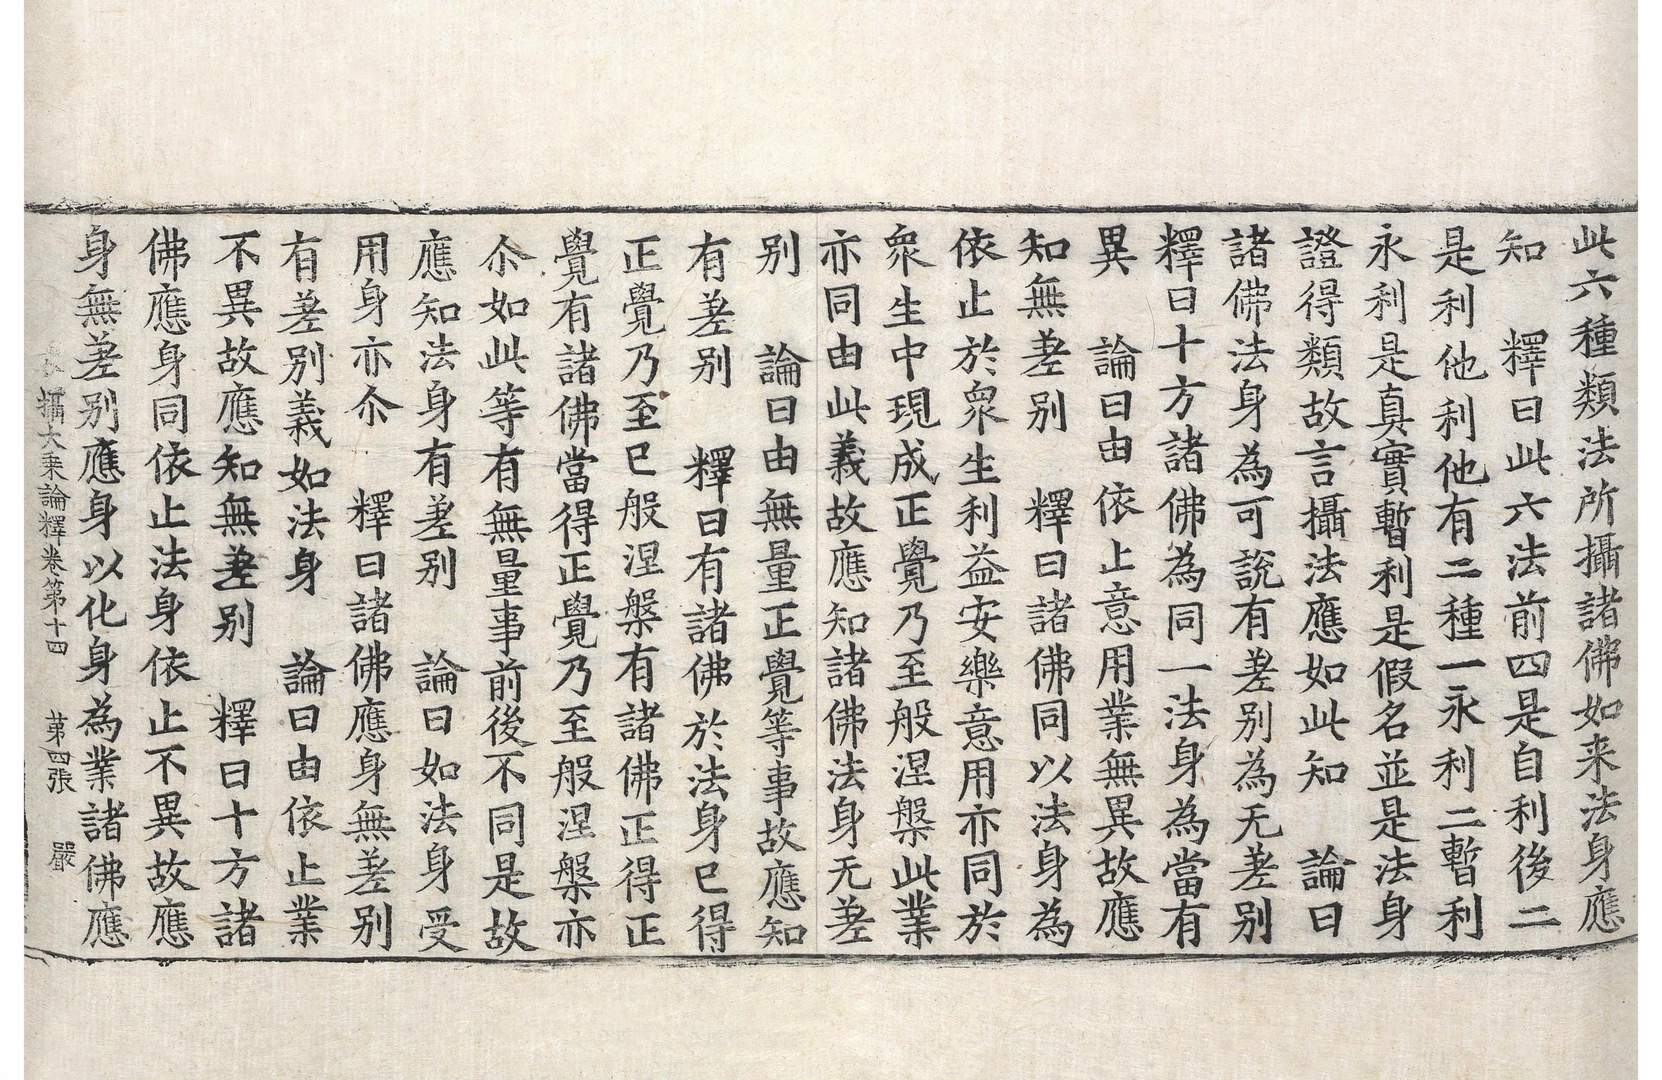 此六種類法所攝諸佛如来法身應
知　釋曰此六法前四是自利後二
是利他利他有二種一永利二暫利
永利是真實暫利是假名並是法身
證得類故言攝法應如此知　論曰
諸佛法身為可說有差别為无差别
釋曰十方諸佛為同一法身為當有
異　論曰由依止意用業無異故應
知無差别　釋曰諸佛同以法身為
依止於衆生利益安樂意用亦同於
衆生中現成正覺乃至般涅槃此業
亦同由此義故應知諸佛法身无差
别　論曰由無量正覺等事故應知
有差别　釋曰有諸佛於法身已得
正覺乃至已般涅槃有諸佛正得正
覺有諸佛當得正覺乃至般涅槃亦
尒如此等有無量事前後不同是故
應知法身有差别　論曰如法身受
用身亦尒　釋曰諸佛應身無差别
有差别義如法身　論曰由依止業
不異故應知無差别　釋曰十方諸
佛應身同依止法身依止不異故應
身無差别應身以化身為業諸佛應
攝大乘論釋卷第十四　第四張　嚴